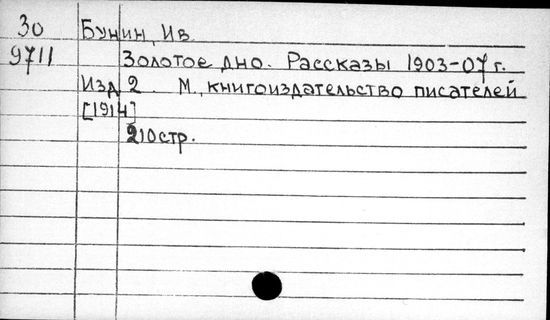 30 Бунин, Ив.
9711 Золотое дно. Рассказы 1903-07 г.
Изд 2. М., книгоиздательство писателей
[1914]
210 стр.